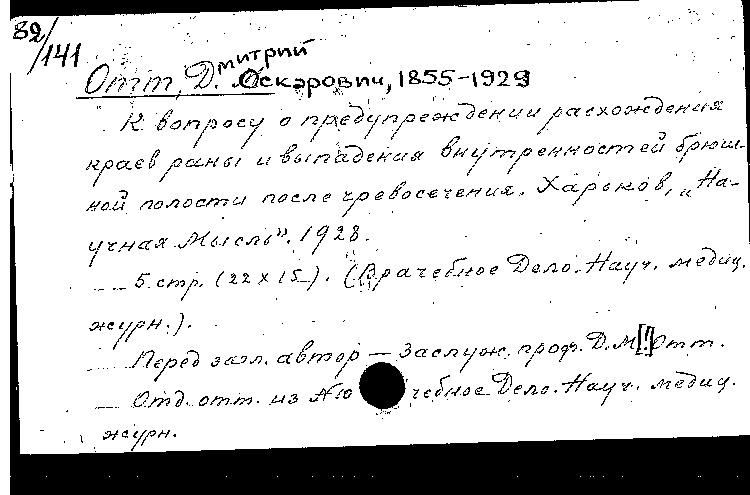 82/141
Отт, Дмитрий Оскарович, 1855-1929
К вопросу о предупреждении расхождения
краев раны и выпадения внутренностей брюш-
ной полости после чревосечения. Харьков, „На-
учная Мысль". 1928.
5 стр. (22 х 15). (Врачебное Дело. Науч. медиц.
журн.).
Перед загл. автор — Заслуж. проф. Д. М[!] Отт.
Отд. отт. из №10 чебное Дело. Науч. медиц.
журн.